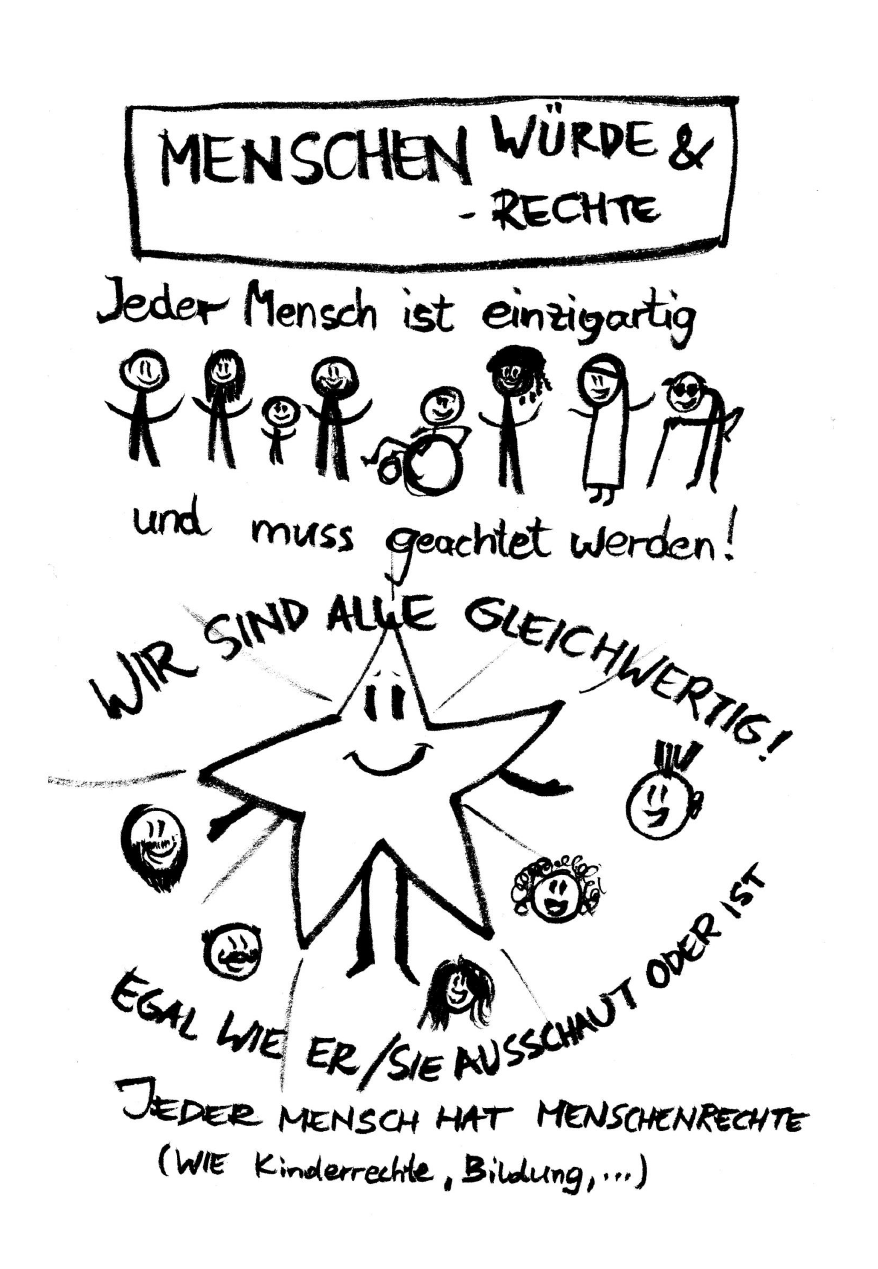 MENSCHEN WÜRDE &
- RECHTE
Jeder Mensch ist einzigartig
und muss geachtet werden!
WIR SIND ALLE GLEICHWERTIG!
EGAL WIE ER/SIE AUSSCHAUT ODER IST
JEDER MENSCH HAT MENSCHENRECHTE
(WIE Kinderrechte, Bildung,...)